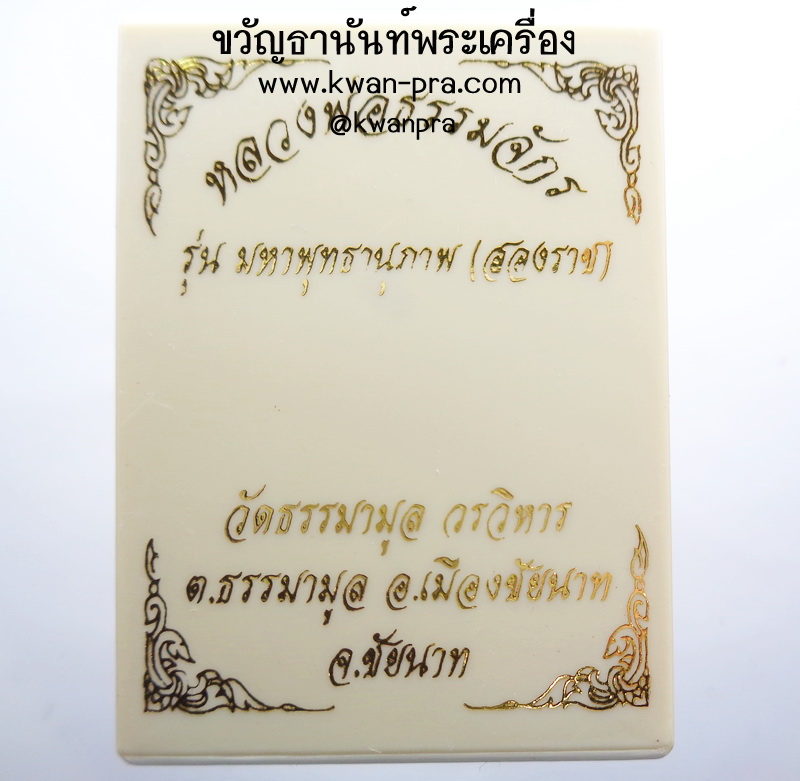 ขวัญธานันท์พระเครื่อง
www.kwan-pra.com
@kwanpra
หลวงพ่อธรรมจักร
รุ่น มหาพุทธานุภาพ (ฮ่องราช)
วัดธรรมามูล วรวิหาร
ต.ธรรมามูล อ.เมืองชัยนาท
จ.ชัยนาท